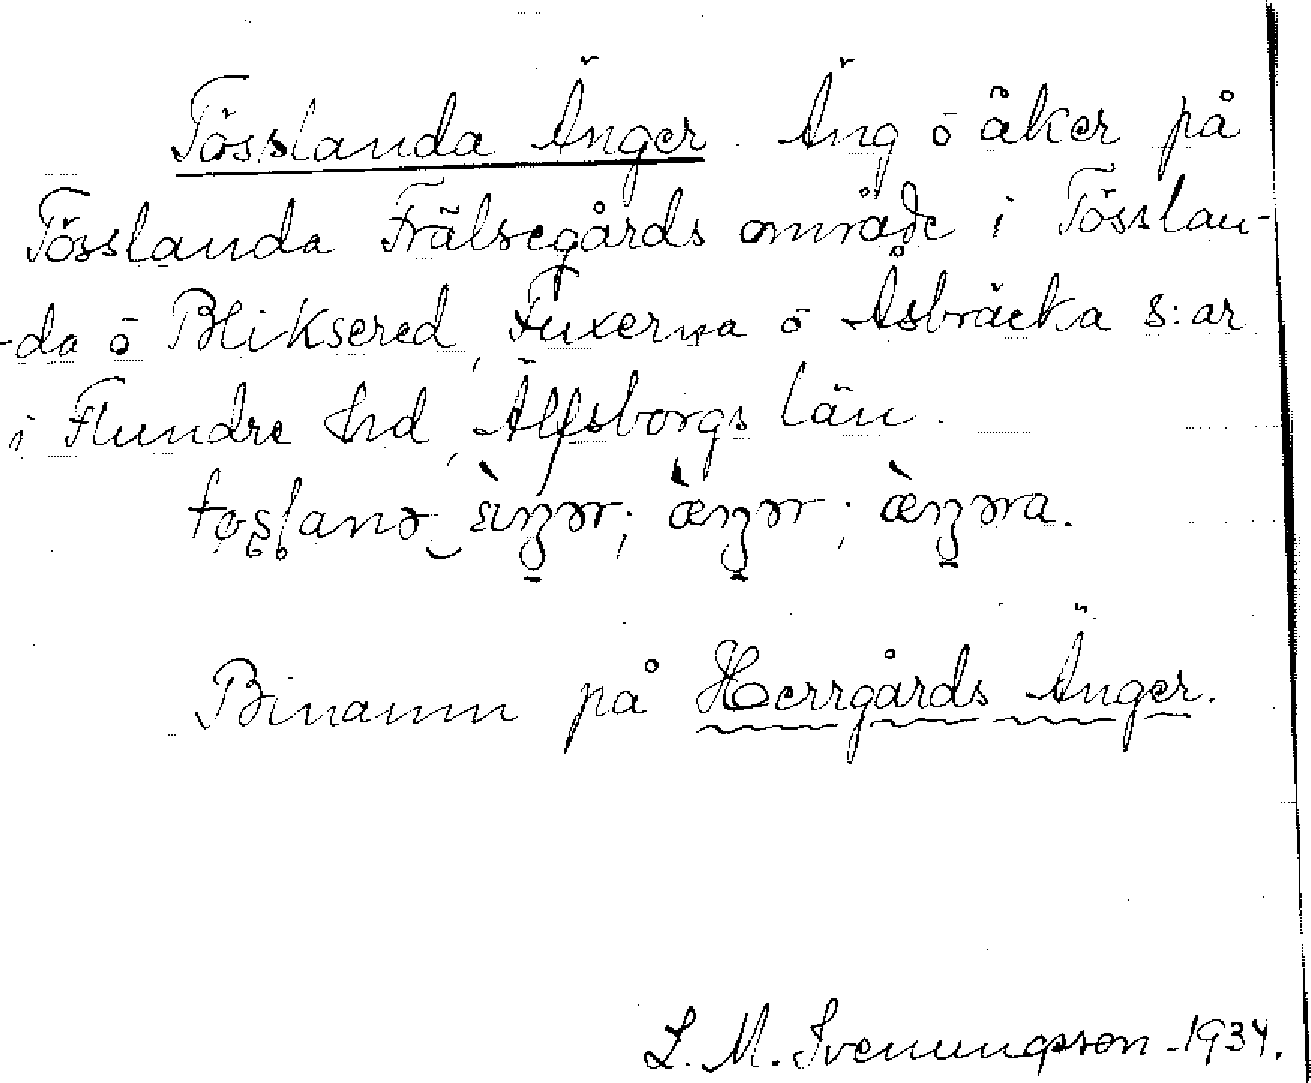 Tösslanda Änger. Äng ō åker på
Tösslanda Frälsegårds område i Tösslan-
-da ō Bliksered, Fuxerna ō Åsbräcka s:ar
i Flundre hd, Älfsborgs län.
Binamn på Herrgårds Änger.
L. M. Svenungsson -1934.